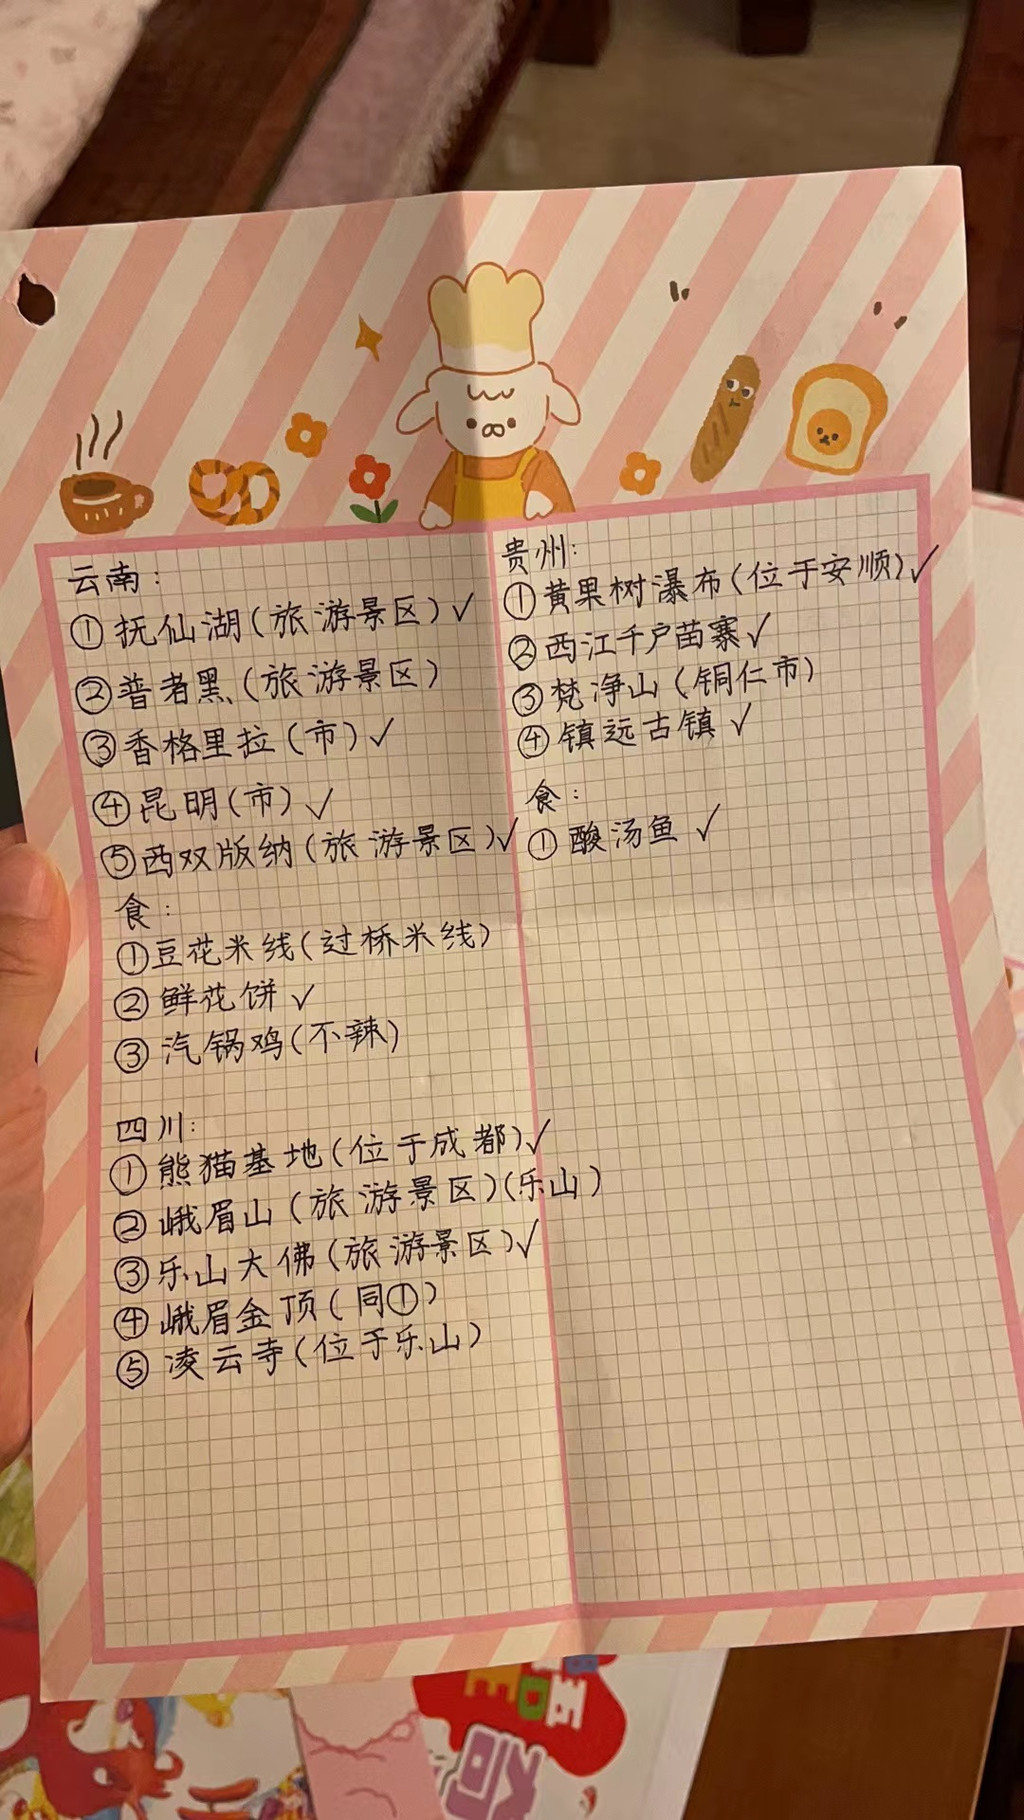 云南:
①抚仙湖(旅游景区)✓
②普者黑(旅游景区)
③香格里拉(市)✓
④昆明(市)✓
⑤西双版纳(旅游景区)✓
食:
①豆花米线(过桥米线)
②鲜花饼✓
③汽锅鸡(不辣)
四川:
①熊猫基地(位于成都)✓
②峨眉山(旅游景区)(乐山)
③乐山大佛(旅游景区)✓
④峨眉金顶(同①)
⑤凌云寺(位于乐山)
贵州:
①黄果树瀑布(位于安顺)✓
②西江千户苗寨✓
③梵净山(铜仁市)
④镇远古镇✓
食:
①酸汤鱼✓